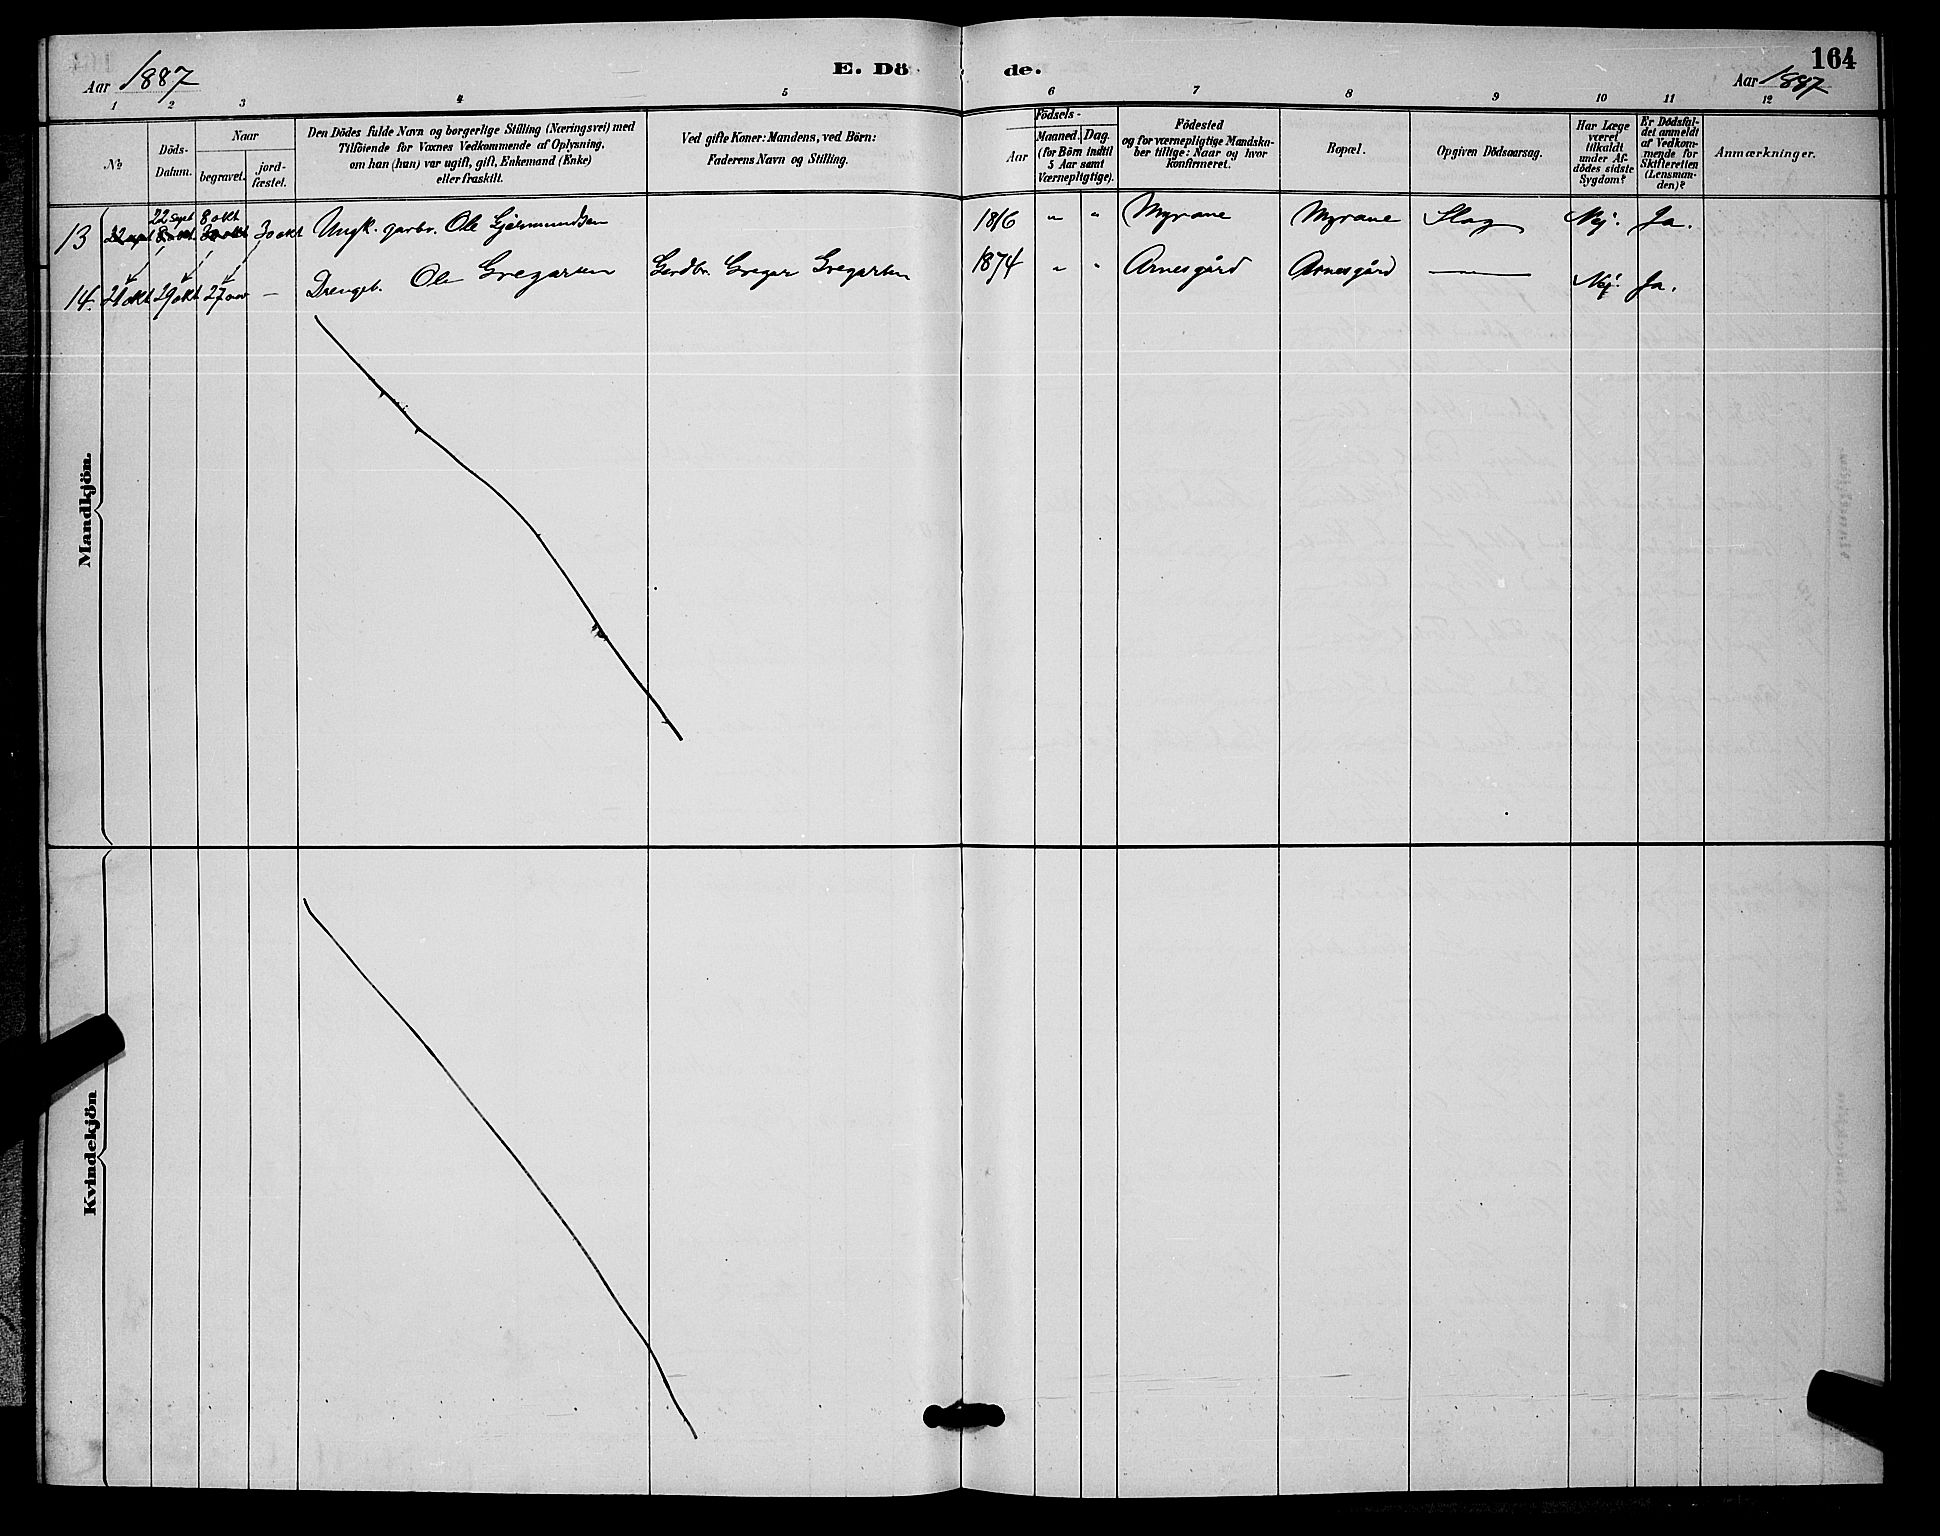 Aar 1887
E. Dö
de.
164
Aar 1887
1 2 3 4 5 6 7 8 9 10 11 12
№
Döds-
Datum.
Naar
begravet.
jord-
fæstet.
Den Dödes fulde Navn og borgerlige Stilling (Næringsvei) med
Tilföiende for Voxnes Vedkommende af Oplysning,
om han (hun) var ugift, gift, Enkemand (Enke)
eller fraskilt.
Ved gifte Koner: Mandens, ved Börn:
Faderens Navn og Stilling.
Födsels-
Aar
Maaned. Dag.
(for Börn indtil
5 Aar samt
Værnepligtige).
Födested
og for værnepligtige Mandska-
ber tillige: Naar og hvor
konfirmeret.
Bopæl.
Opgiven Dödsaarsag.
Har Læge
været
tilkaldt
under Af-
dödes sidste
Sygdom?
Er Dödsfal-
det anmeldt
af Vedkom-
mende for
Skifteretten
(Lensman-
den)?
Anmærkninger.
22 sept 8 okt
13 22 sept 8 okt 30 okt 30 okt Ungk. gardbr. Ole Gjermundsen 1816 " " Myrane Myrane Slag Nej. Ja.
14. 21 okt 29 okt 27 nov — Drengeb. Ole Gregarsen Gardbr. Gregar Gregarsen 1874 " " Arnesgård Arnesgård — Nej. Ja.
Mandkjön.
Kvindekjön